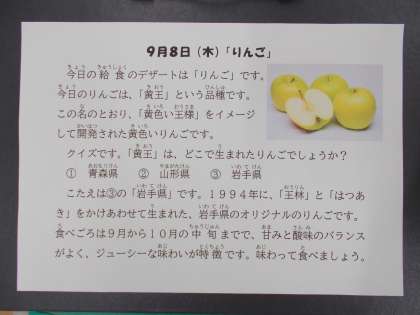 9月8日（木）「りんご」
今日の給食のデザートは「りんご」です。
今日のりんごは、「黄王」という品種です。
この名のとおり、「黄色い王様」をイメージ
して開発された黄色いりんごです。
クイズです。「黄王」は、どこで生まれたりんごでしょうか？
① 青森県　② 山形県　③ 岩手県
こたえは③の「岩手県」です。１９９４年に、「王林」と「はつあ
き」をかけあわせて生まれた、岩手県のオリジナルのりんごです。
食べごろは９月から１０月の中旬までで、甘みと酸味のバランス
がよく、ジューシーな味わいが特徴です。味わって食べましょう。